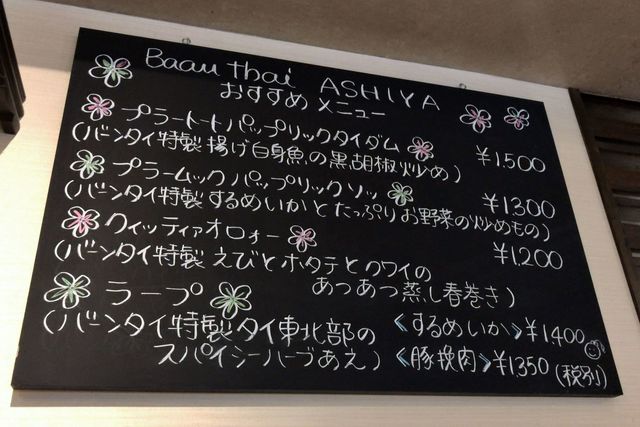 Baan thai ASHIYA
おすすめメニュー
プラートートパップリックタイダム ¥1,500
(バーンタイ特製 揚げ白身魚の黒胡椒炒め)
プラームック パップリックソッ ¥1300
(バーンタイ特製 するめいかと たっぷり お野菜の炒めもの)
クィッティァオロォー ¥1,200
(バーンタイ特製 えびとホタテとクワイの
あつあつ蒸し春巻き)
ラープ
(バーンタイ特製 タイ東北部の 《するめいか》¥1400
スパイシーハーブあえ) 《豚挽肉》¥1350
(税別)